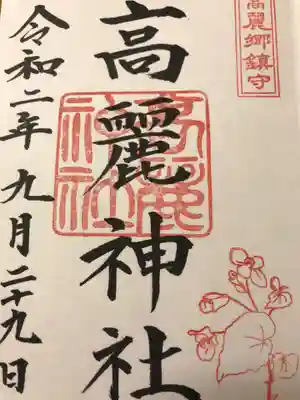 高麗郷鎮守
高麗神社
令和二年九月二十九日
高麗神社